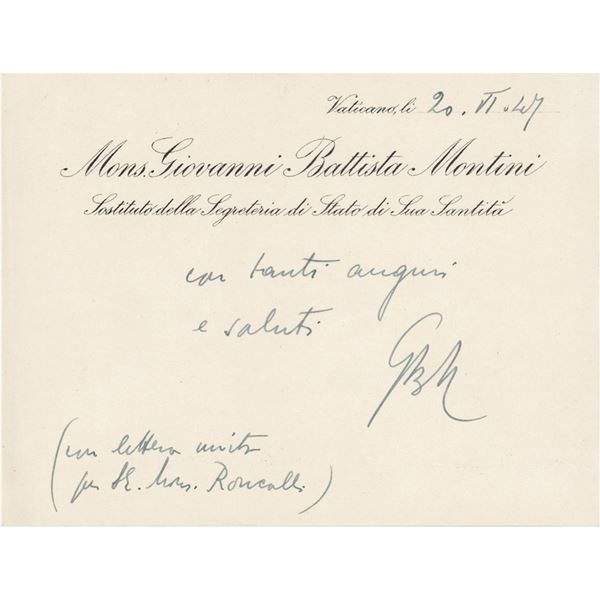 Vaticano, li 20. VI. 47
Mons. Giovanni Battista Montini
Sostituto della Segreteria di Stato di Sua Santità
con tanti auguri
e saluti
GBM
(con lettera unita
per S.E. Mons. Roncalli)